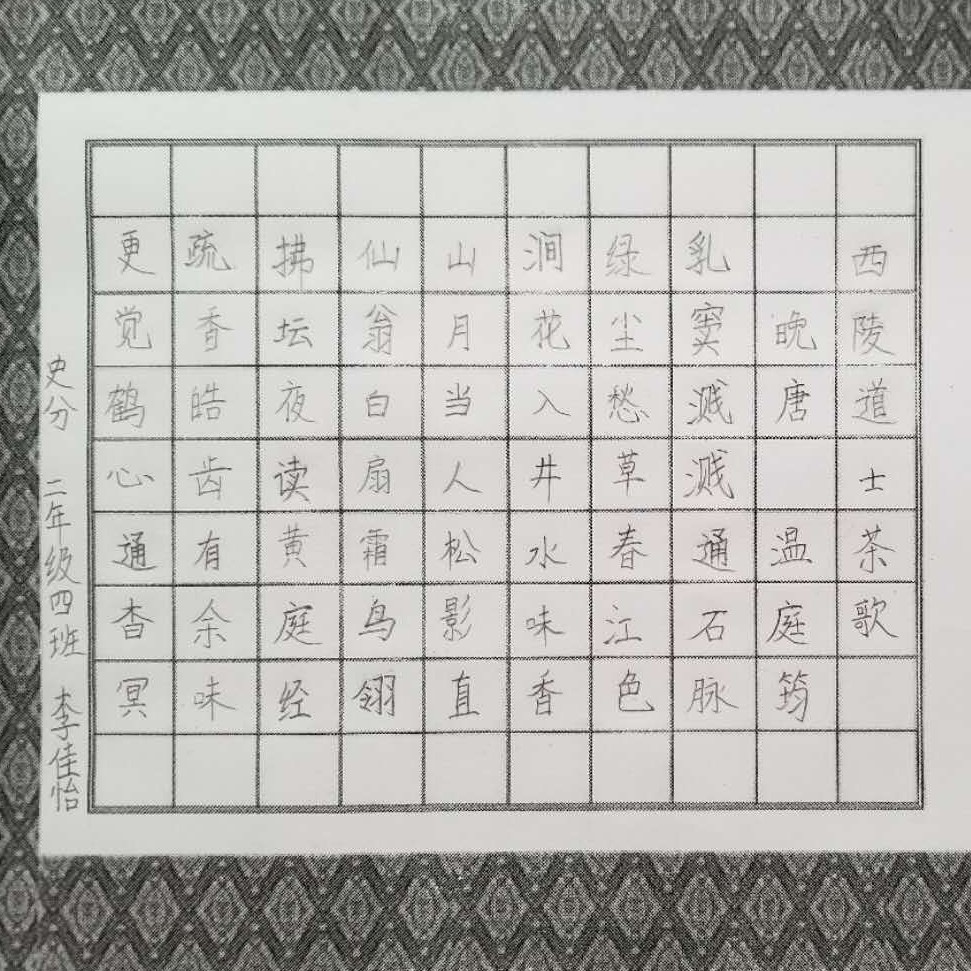 西陵道士茶歌
晚唐 温庭筠
乳窦溅溅通石脉
绿尘愁草春江色
涧花入井水味香
山月当人松影直
仙翁白扇霜鸟翎
拂坛夜读黄庭经
疏香皓齿有余味
更觉鹤心通杳冥
史分 二年级四班 李佳怡